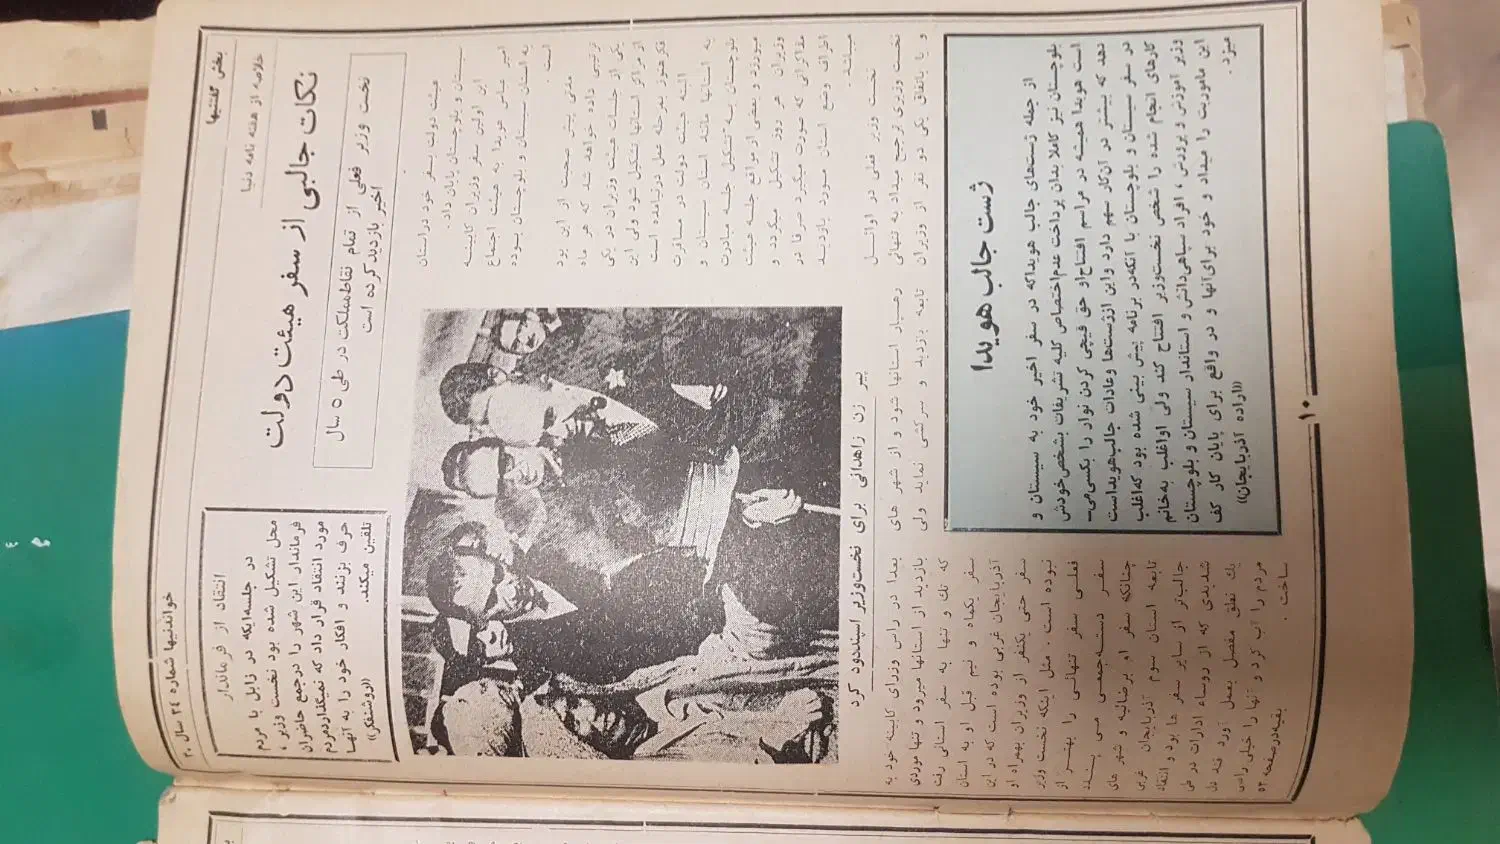 بخش گفتنیها
خواندنیها شماره ۳۴ سال ۳۰
خلاصه از هفته نامه دنیا
نکات جالبی از سفر هیئت دولت
نخست وزیر فعلی از تمام نقاط مملکت در طی ۵ سال
اخیر بازدید کرده است
انتقاد از فرماندار
در جلسه‌ایکه در زابل با مردم
محل تشکیل شده بود نخست وزیر ،
فرماندار این شهر را در جمع حاضران
مورد انتقاد قرار داد که نمیگذارد مردم
حرف بزنند و افکار خود را به آنها
تلقین میکند.
((روشنفکر))
هیئت دولت سفر خود در استان
سیستان و بلوچستان پایان داد.
این اولین سفر وزیران کابینه
امیر عباس هویدا به هیئت اجتماع
به استان سیستان و بلوچستان بوده
است .
مدتی پیش صحبت از این بود
ترتیبی داده خواهد شد که هر ماه
یکی از جلسات هیئت وزیران در یکی
از مراکز استانها تشکیل شود ولی این
فکر هنوز بمرحله عمل در نیامده است
البته هیئت دولت در مسافرت
به استانها مانند استان سیستان و
بلوچستان به تشکیل جلسه مبادرت
میورزد و بعضی از مواقع جلسه هیئت
وزیران هر روز تشکیل میگردد و
مذاکراتی که صورت میگیرد صرفا در
اطراف وضع استان مورد بازدید
میباشد.
نخست وزیر فعلی در اوائل
نخست وزیری ترجیح میداد به تنهائی
و یا باتفاق یکی دو نفر از وزیران
پیر زن زاهدانی برای نخست‌وزیر اسپند دود کرد
رهسپار استانها شود و از شهر های
تابعه بازدید و سرکشی نماید ولی
بعدا در راس وزرای کابینه خود به
بازدید از استانها میرود و تنها موردی
که تك و تنها به سفر استانی رفت
سفر یکماه و نیم قبل او به استان
آذربایجان غربی بوده است که در این
سفر حتی یکنفر از وزیران بهمراه او
نبوده است . مثل اینکه نخست وزیر
فعلی سفر تنهائی را بهتر از
سفر دسته‌جمعی می پسندد
چنانکه سفر او برضائیه و شهر های
تابعه استان سوم آذربایجان غربی
جالب‌تر از سایر سفر ها بود و انتقاد
شدیدی که از روساء ادارات در طی
یك نطق مفصل بعمل آورد قند دل
مردم را آب کرد و آنها را خیلی راضی
ساخت .
بقیه در صفحه ۵۲
ژست جالب هویدا
از جمله ژست‌های جالب هویدا که در سفر اخیر خود به سیستان و
بلوچستان نیز کاملا بدان پرداخت عدم‌اختصاص کلیه تشریفات بشخص خودش
است هویدا همیشه در مراسم افتتاح او حق قیچی کردن نوار را بکسی می‌-
دهد که بیشتر در آن‌کار سهم دارد و این از ژست‌ها وعادات جالب هویداست
در سفر سیستان و بلوچستان با آنکه در برنامه پیش بینی شده بود که اغلب
کارهای انجام شده را شخص نخست‌وزیر افتتاح کند ولی او اغلب به خانم
وزیر آموزش و پرورش ، افراد سپاهی‌دانش و استاندار سیستان و بلوچستان
این ماموریت را میداد و خود برای آنها و در واقع برای پایان کار کف
میزد.
((اراده آذربایجان))
۱۰